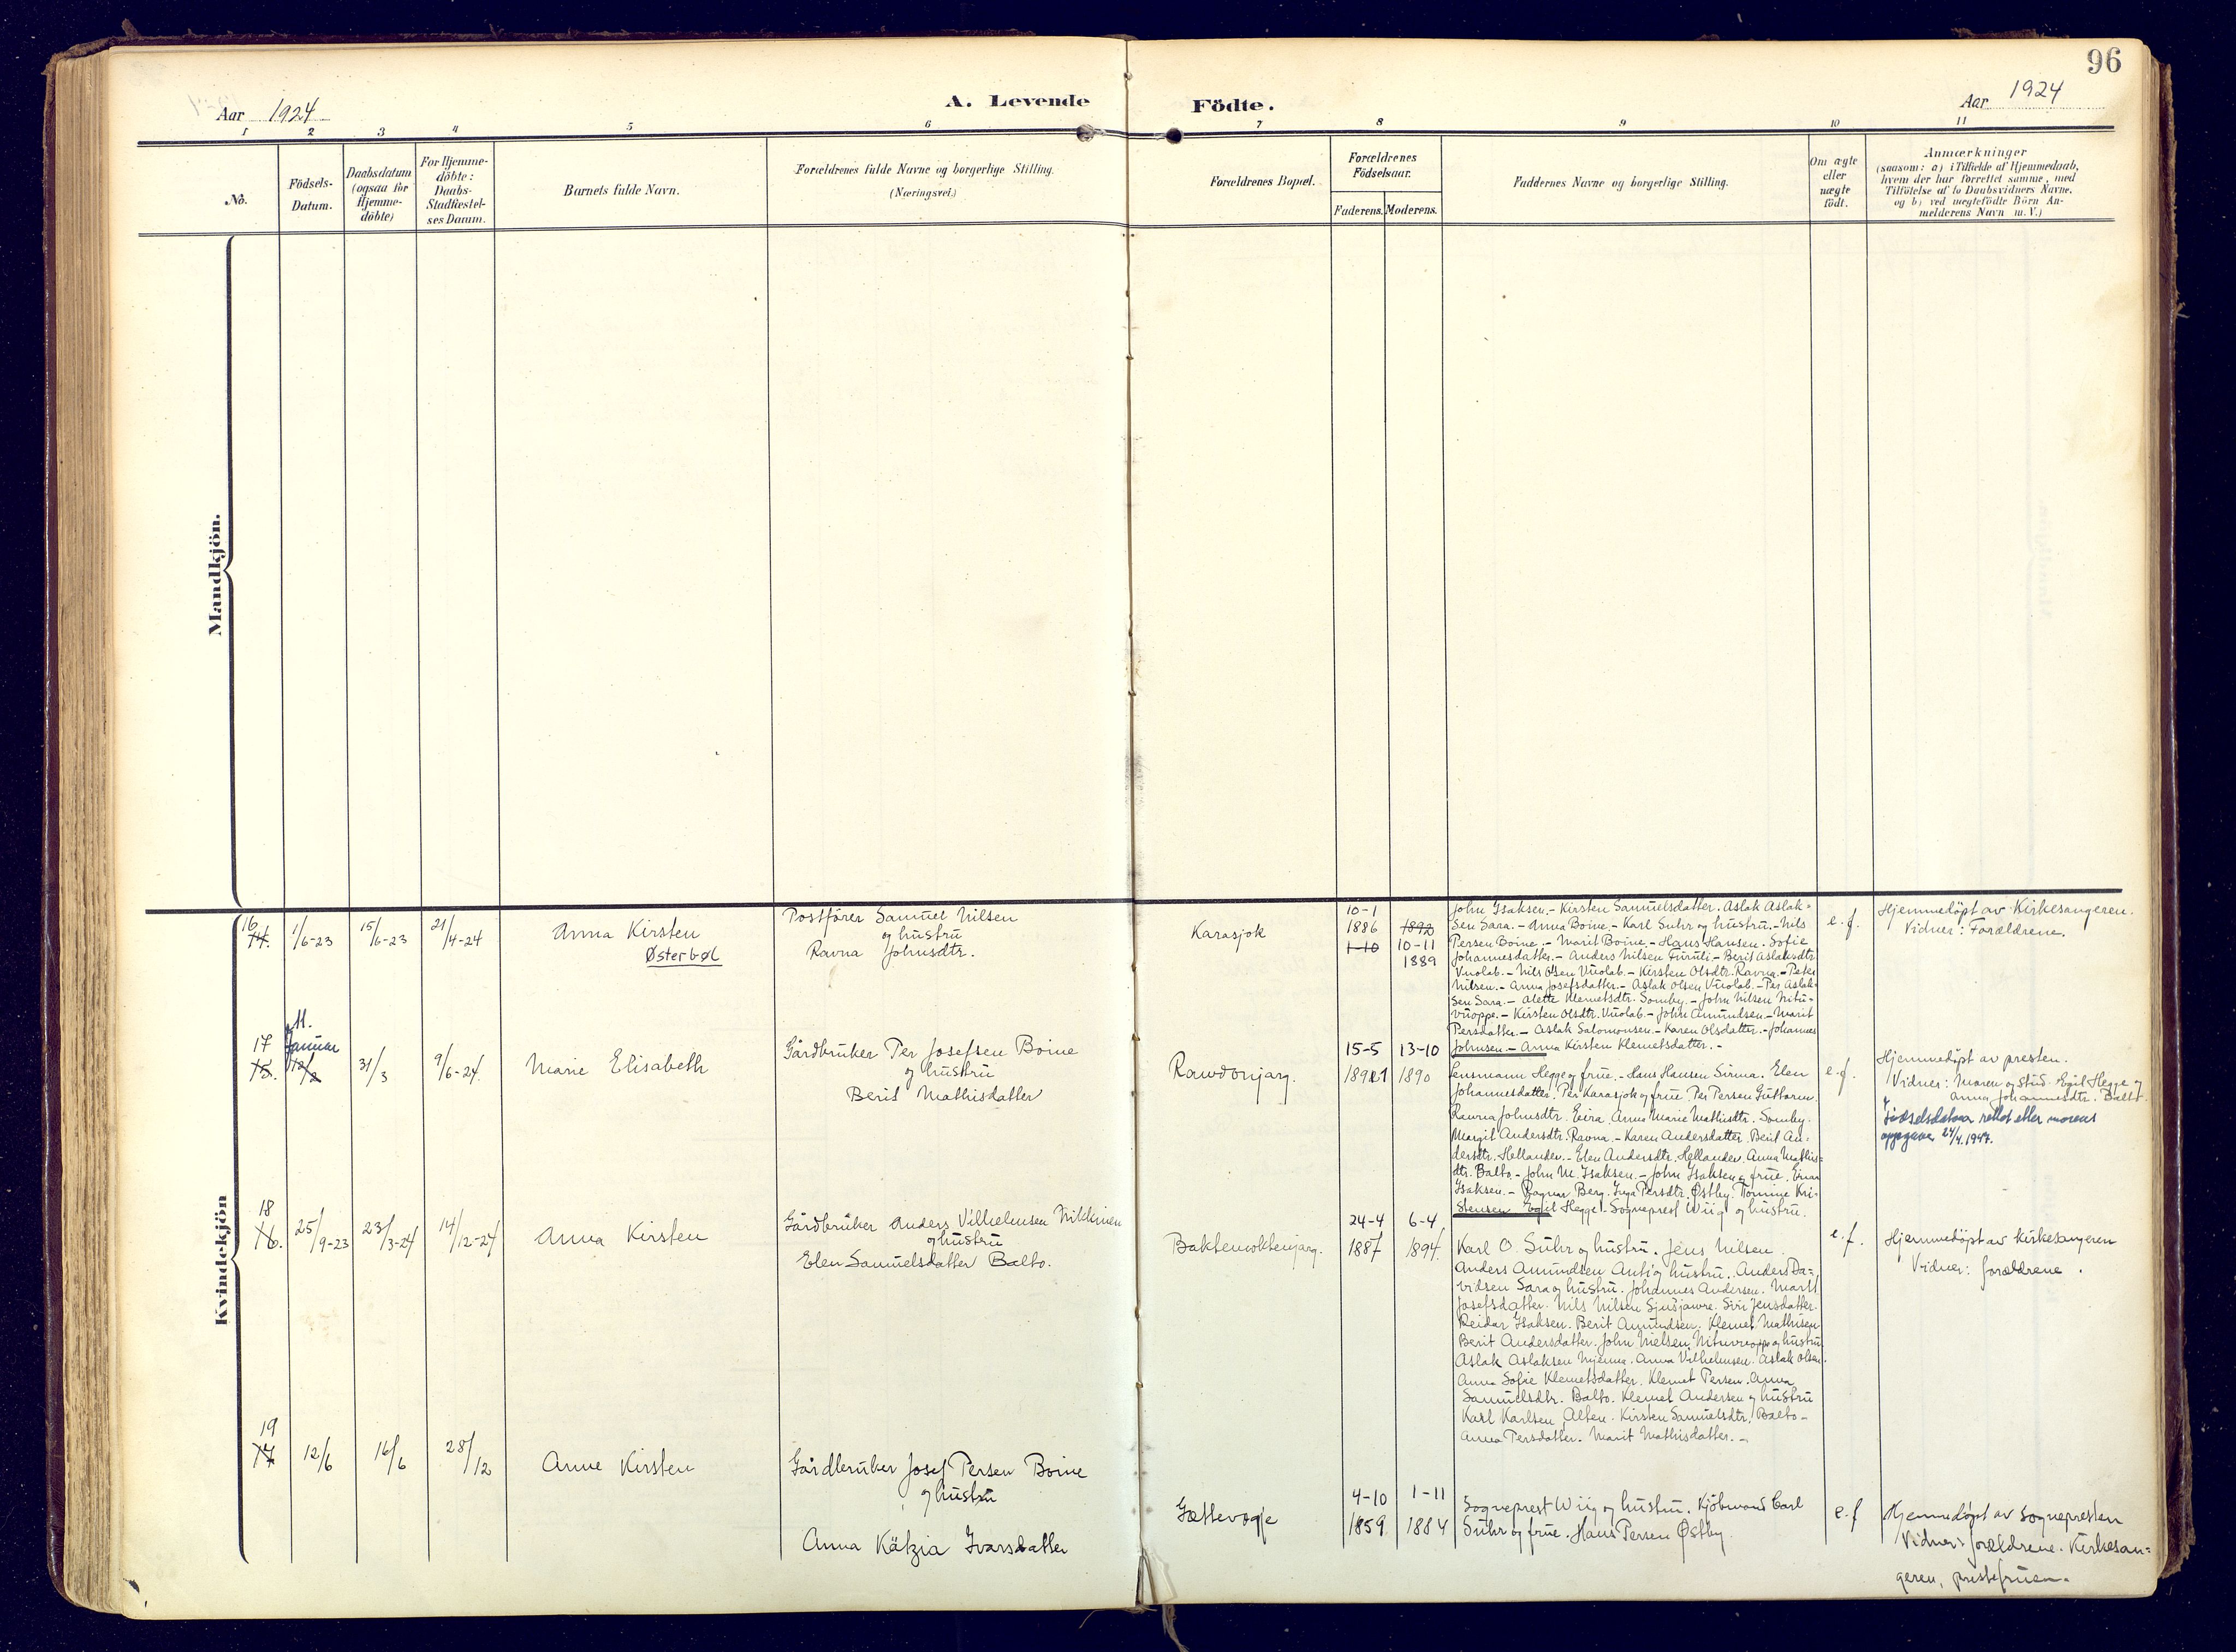 96
Aar 1924
A. Levende
Födte.
Aar 1924
1 2 3 4 5 6 7 8 9 10 11
No.
Födsels-
Datum.
Daabsdatum
(ogsaa for
Hjemme-
döbte)
For Hjemme-
döbte:
Daabs-
Stadfæstel-
ses Datum.
Barnets fulde Navn.
Forældrenes fulde Navne og borgerlige Stilling.
(Næringsvei.)
Forældrenes Bopæl.
Forældrenes
Födselsaar.
Faderens.
Moderens.
Faddernes Navne og borgerlige Stilling.
Om ægte
eller
uægte
födt.
Anmærkninger
(saasom: a) i Tilfælde af Hjemmedaab,
hvem der har forrettet samme, med
Tilföielse af to Daabsvidners Navne.
og b) ved uægtefödte Börn An-
melderens Navn m. V.)
Mandkjön.
Kvindekjön
16
14.
1/6-23
15/6-23
21/4-24
Anna Kirsten
Østerbøl
Postfører Samuel Nilsen
og hustru
Ravna Johnsdtr.
Karasjok
10-1
1886
1-10
1892
10-11
1889
John Isaksen.- Kirsten Samuelsdatter. Aslak Aslak-
sen Sara.- Anna Boine.- Karl Suhr og hustru.- Nils
Persen Boine.- Marit Boine.- Hans Hansen. Sofie
Johannesdatter.- Anders Nilsen Furuli.- Berit Aslaksdtr
Vuolab.- Nils Olsen Vuolab.- Kirsten Olsdtr. Ravna.- Peter
Nilsen.- Anna Josefsdatter.- Aslak Olsen Vuolab.- Per Aslak-
sen Sara.- Alette Klemetsdtr. Somby.- John Nilsen Nitu-
vuoppe.- Kirsten Olsdtr. Vuolab.- John Amundsen.- Marit
Persdatter.- Aslak Salomonsen.- Karen Olsdatter.- Johannes
Johnsen.- Anna Kirsten Klemetsdatter.-
e.f.
Hjemmedøpt av Kirkesangeren.
Vidner: Forældrene.
17
15.
11.
Januar
12/2
31/3
9/6-24.
Marie Elisabeth
Gårdbruker Per Josefsen Boine
og hustru
Berit Mathisdatter
Rawdonjarg.
15-5
1891
13-10
1890
Lensmann Hegge og frue.- Hans Hansen Sirma. Elen
Johannesdatter. Per Karasjok og frue. Per Persen Guttorm.
Ravna Johnsdtr. Eira. Anna Marie Mathisdtr. Somby.
Margit Andersdtr. Ravna.- Karen Andersdatter. Berit An-
dersdtr. Hellander.- Elen Andersdtr. Hellander. Anna Mathis-
dtr. Balto.- John M. Isaksen.- John Isaksen og frue. Einar
Isaksen.- Ragnar Berg. Inga Persdtr. Østby. Tomine Kri-
stensen Egil Hegge. Sogneprest Wiig og hustru.
e.f.
Hjemmedøpt av presten.
Vidner: Moren og stud. Egil Hegge og
Anna Johannesdtr. Balto.
Fødselsdatoen rettet etter morens
oppgave 24/4.1947.
18
16.
25/9-23
23/3-24
14/12-24
Anna Kirsten
Gårdbruker Anders Vilhelmsen Nikkinen
og hustru
Elen Samuelsdatter Balto.
24-4
1887
6-4
1894.
Karl O. Suhr og hustru. Jens Nilsen.
Anders Amundsen Anti og hustru. Anders Da-
vidsen Sara og hustru. Johannes Andersen. Marit
Josefsdatter. Nils Nilsen Sjusjawre. Siri Jensdatter.
Reidar Isaksen. Berit Amundsen. Klemet Mathisen
Berit Andersdatter. John Nielsen og hustru
Aslak Aslaksen Anna Vilhelmsen. Aslak Olsen.
Anna Sofie Klemetsdatter. Klemet Persen. Anna
Samuelsdtr. Balto. Klemet Andersen og hustru
Karl Karlsen Alten. Kirsten Samuelsdtr. Balto-
Anna Persdatter. Marit Mathisdatter.-
e.f.
Hjemmedøpt av Kirkesangeren
Vidner: forældrene.
19
17
12/6
16/6
28/12
Anne Kirsten
Gårdbruker Josef Persen Boine
og hustru
Anna Kätzia Ivarsdatter
4-10
1859
1-11
1884
Sogneprest Wiig og hustru. Kjöbmand Carl
Suhr og frue. Hans Persen Østby.
e.f
Hjemmedøpt av sognepresten
Vidner: forældrene. Kirkesan-
geren, prestefruen.